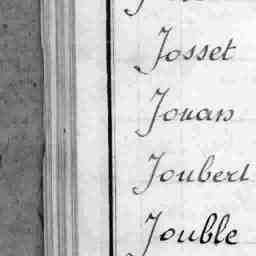 Josset
Jouan
Joubert
Jouble